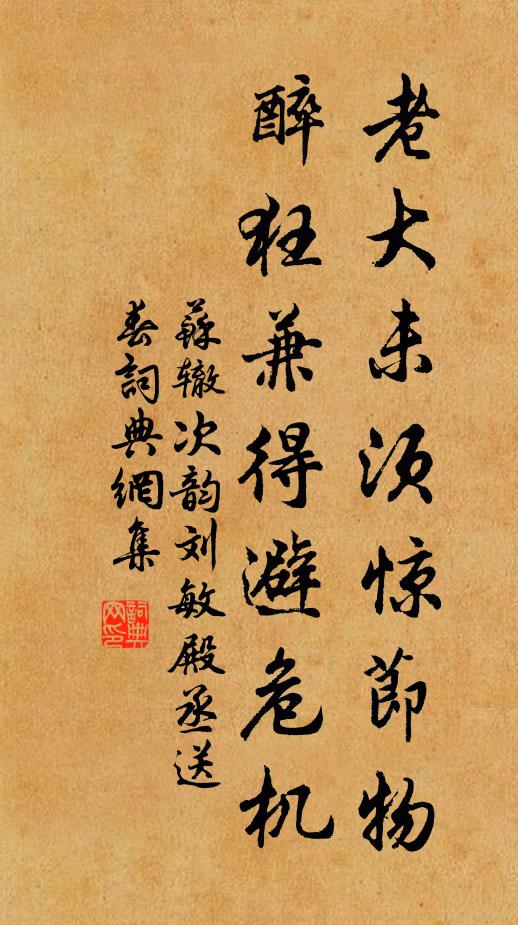 老大未须惊節物
醉狂兼得避危机
蘇辙次韵刘敏殿丞送
春詞典網集
詞典网印